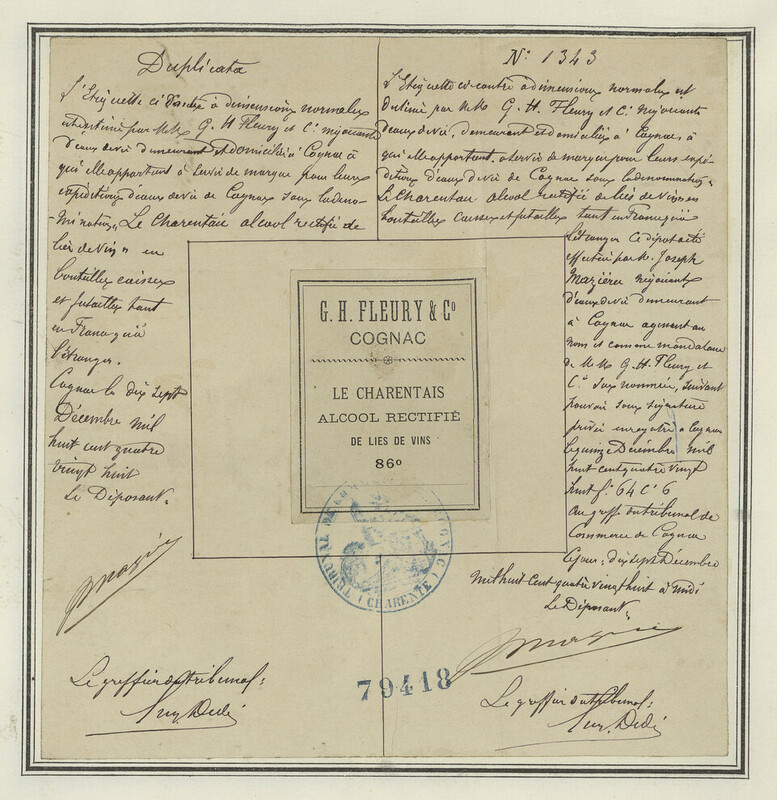 Duplicata
L'Etiquette ci contre a dimensions normales
est destinée par MM. G. H. Fleury et Cie négociants
d'eaux de vie demeurant et domiciliés à Cognac à
qui elle appartient à servir de marque pour leurs
expéditions d'eaux de vie de Cognac sous la déno-
mination „Le Charentais alcool rectifié de
lies de vins" en
bouteilles caisses
et futailles tant
en France qu'à
l'étranger.
Cognac le dix sept
Décembre mil
huit cent quatre
vingt huit
Le Déposant.
Le greffier du tribunal:
N° 1343
L'Etiquette ci contre a dimensions normales est
destinée par MM. G. H. Fleury et Cie négociants
d'eaux de vie, demeurant et domiciliés à Cognac, à
qui elle appartient, à servir de marque pour leurs expé-
ditions d'eaux de vie de Cognac sous la dénomination
Le Charentais alcool rectifié de lies de vins en
bouteilles caisses et futailles tant en France qu'à
l'étranger Ce dépôt a été
effectué par M. Joseph
Mazière négociant
d'eaux de vie demeurant
à Cognac agissant au
nom et comme mandataire
de MM. G. H. Fleury et
Cie sus nommés, suivant
pouvoir sous signature
privée enregistré à Cognac
le quinze Décembre mil
huit cent quatre vingt
huit fo 64 Co 6
au greffe du tribunal de
Commerce de Cognac
ce jour, dix sept Décembre
mil huit cent quatre vingt huit à midi
Le Déposant
Le greffier du tribunal:
G. H. FLEURY & Co
COGNAC
LE CHARENTAIS
ALCOOL RECTIFIÉ
DE LIES DE VINS
86°
TRIBUNAL DE
(CHARENTE)
79418